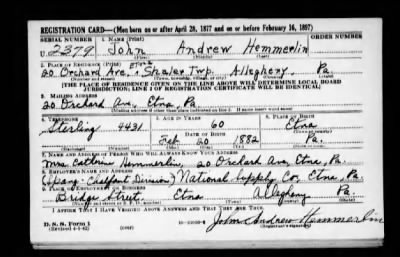 REGISTRATION CARD—(Men born on or after April 28, 1877 and on or before February 16, 1897)
SERIAL NUMBER 1. NAME (Print) ORDER NUMBER
U 2379 John Andrew Hemmerlin
(First) (Middle) (Last)
2. PLACE OF RESIDENCE (Print)
Etna
20 Orchard Ave., Shaler Twp. Allegheny Pa.
(Number and street) (Town, township, village, or city) (County) (State)
[THE PLACE OF RESIDENCE GIVEN ON THE LINE ABOVE WILL DETERMINE LOCAL BOARD
JURISDICTION; LINE 2 OF REGISTRATION CERTIFICATE WILL BE IDENTICAL]
3. MAILING ADDRESS
20 Orchard Ave, Etna, Pa.
[Mailing address if other than place indicated on line 2. If same insert word same]
4. TELEPHONE 5. AGE IN YEARS 6. PLACE OF BIRTH
60 Etna
Sterling 4431 DATE OF BIRTH (Town or county)
Feb 20 1882 Pa.
(Exchange) (Number) (Mo.) (Day) (Yr.) (State or country)
7. NAME AND ADDRESS OF PERSON WHO WILL ALWAYS KNOW YOUR ADDRESS
Mrs. Hemmerlin, 20 Orchard Ave, Etna, Pa.
8. EMPLOYER'S NAME AND ADDRESS
(Spang-Chalfant Division) National Supply Co, Etna, Pa.
9. PLACE OF EMPLOYMENT OR BUSINESS
Bridge Street, Etna Allegheny Pa.
(Number and street or R. F. D. number) (Town) (County) (State)
I AFFIRM THAT I HAVE VERIFIED ABOVE ANSWERS AND THAT THEY ARE TRUE.
D. S. S. Form 1
(Revised 4-1-42) (over)
John Andrew Hemmerlin